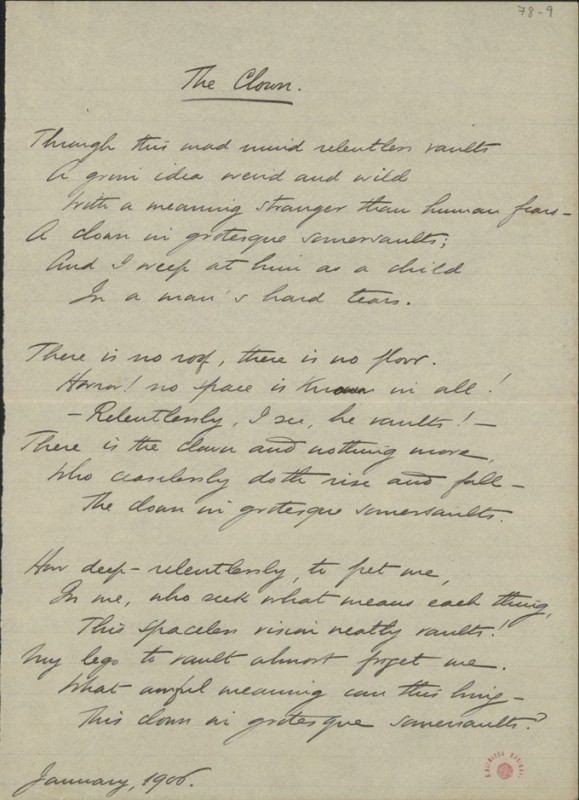 78-9
The Clown.
Through this mad mind relentless vaults
A grim idea weird and wild
With a meaning stranger than human fears—
A clown in grotesque somersaults;
And I weep at him as a child
In a man's hard tears.
There is no roof, there is no floor.
Horror! no space is known in all!
—Relentlessly, I see, he vaults!—
There is the clown and nothing more,
Who ceaselessly doth rise and fall—
The clown in grotesque somersaults.
How deep-relentlessly, to fret me,
In me, who seek what means each thing,
This spaceless vision neatly vaults!
My legs to vault almost forget me.
What awful meaning can this bring—
This clown in grotesque somersaults?
January, 1906.